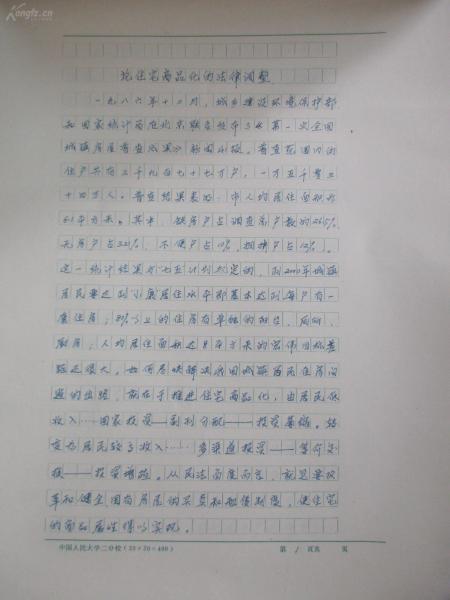 Kongfz.cn
论住宅商品化的法律调整
一九八六年十二月，城乡建设环境保护部
和国家统计局在北京联合发布了《第一次全国
城镇房屋普查成果》新闻公报。普查范围内的
住户共有三千九百七十七万户，一万五千
十四万人。普查结果表明：市人均居住面积为
平方米。其中，缺房户占调查总户数的
无房户占 不便户占 拥挤户占
这一统计结果与七五计划规定的，到2000年城镇
居民要达到小康居住水平即基本达到每户有一
套住房；以上的住房有单独的
厨房；人均居住面积达8平方米的宏伟目标差
距还很大。如何尽快解决我国城镇居民住房问
题的出路，就在于推进住宅商品化，由居民低
收入……国家投资——福利分配——投资萎缩。转
变为居民较多收入……多渠道投资——等价交
换——投资增殖。从民法角度而言，就是要改
革和健全国有房屋的买卖和租赁制度，使住宅
的商品属性得以实现。
中国人民大学二分校（20×20=400）
第1页共 页